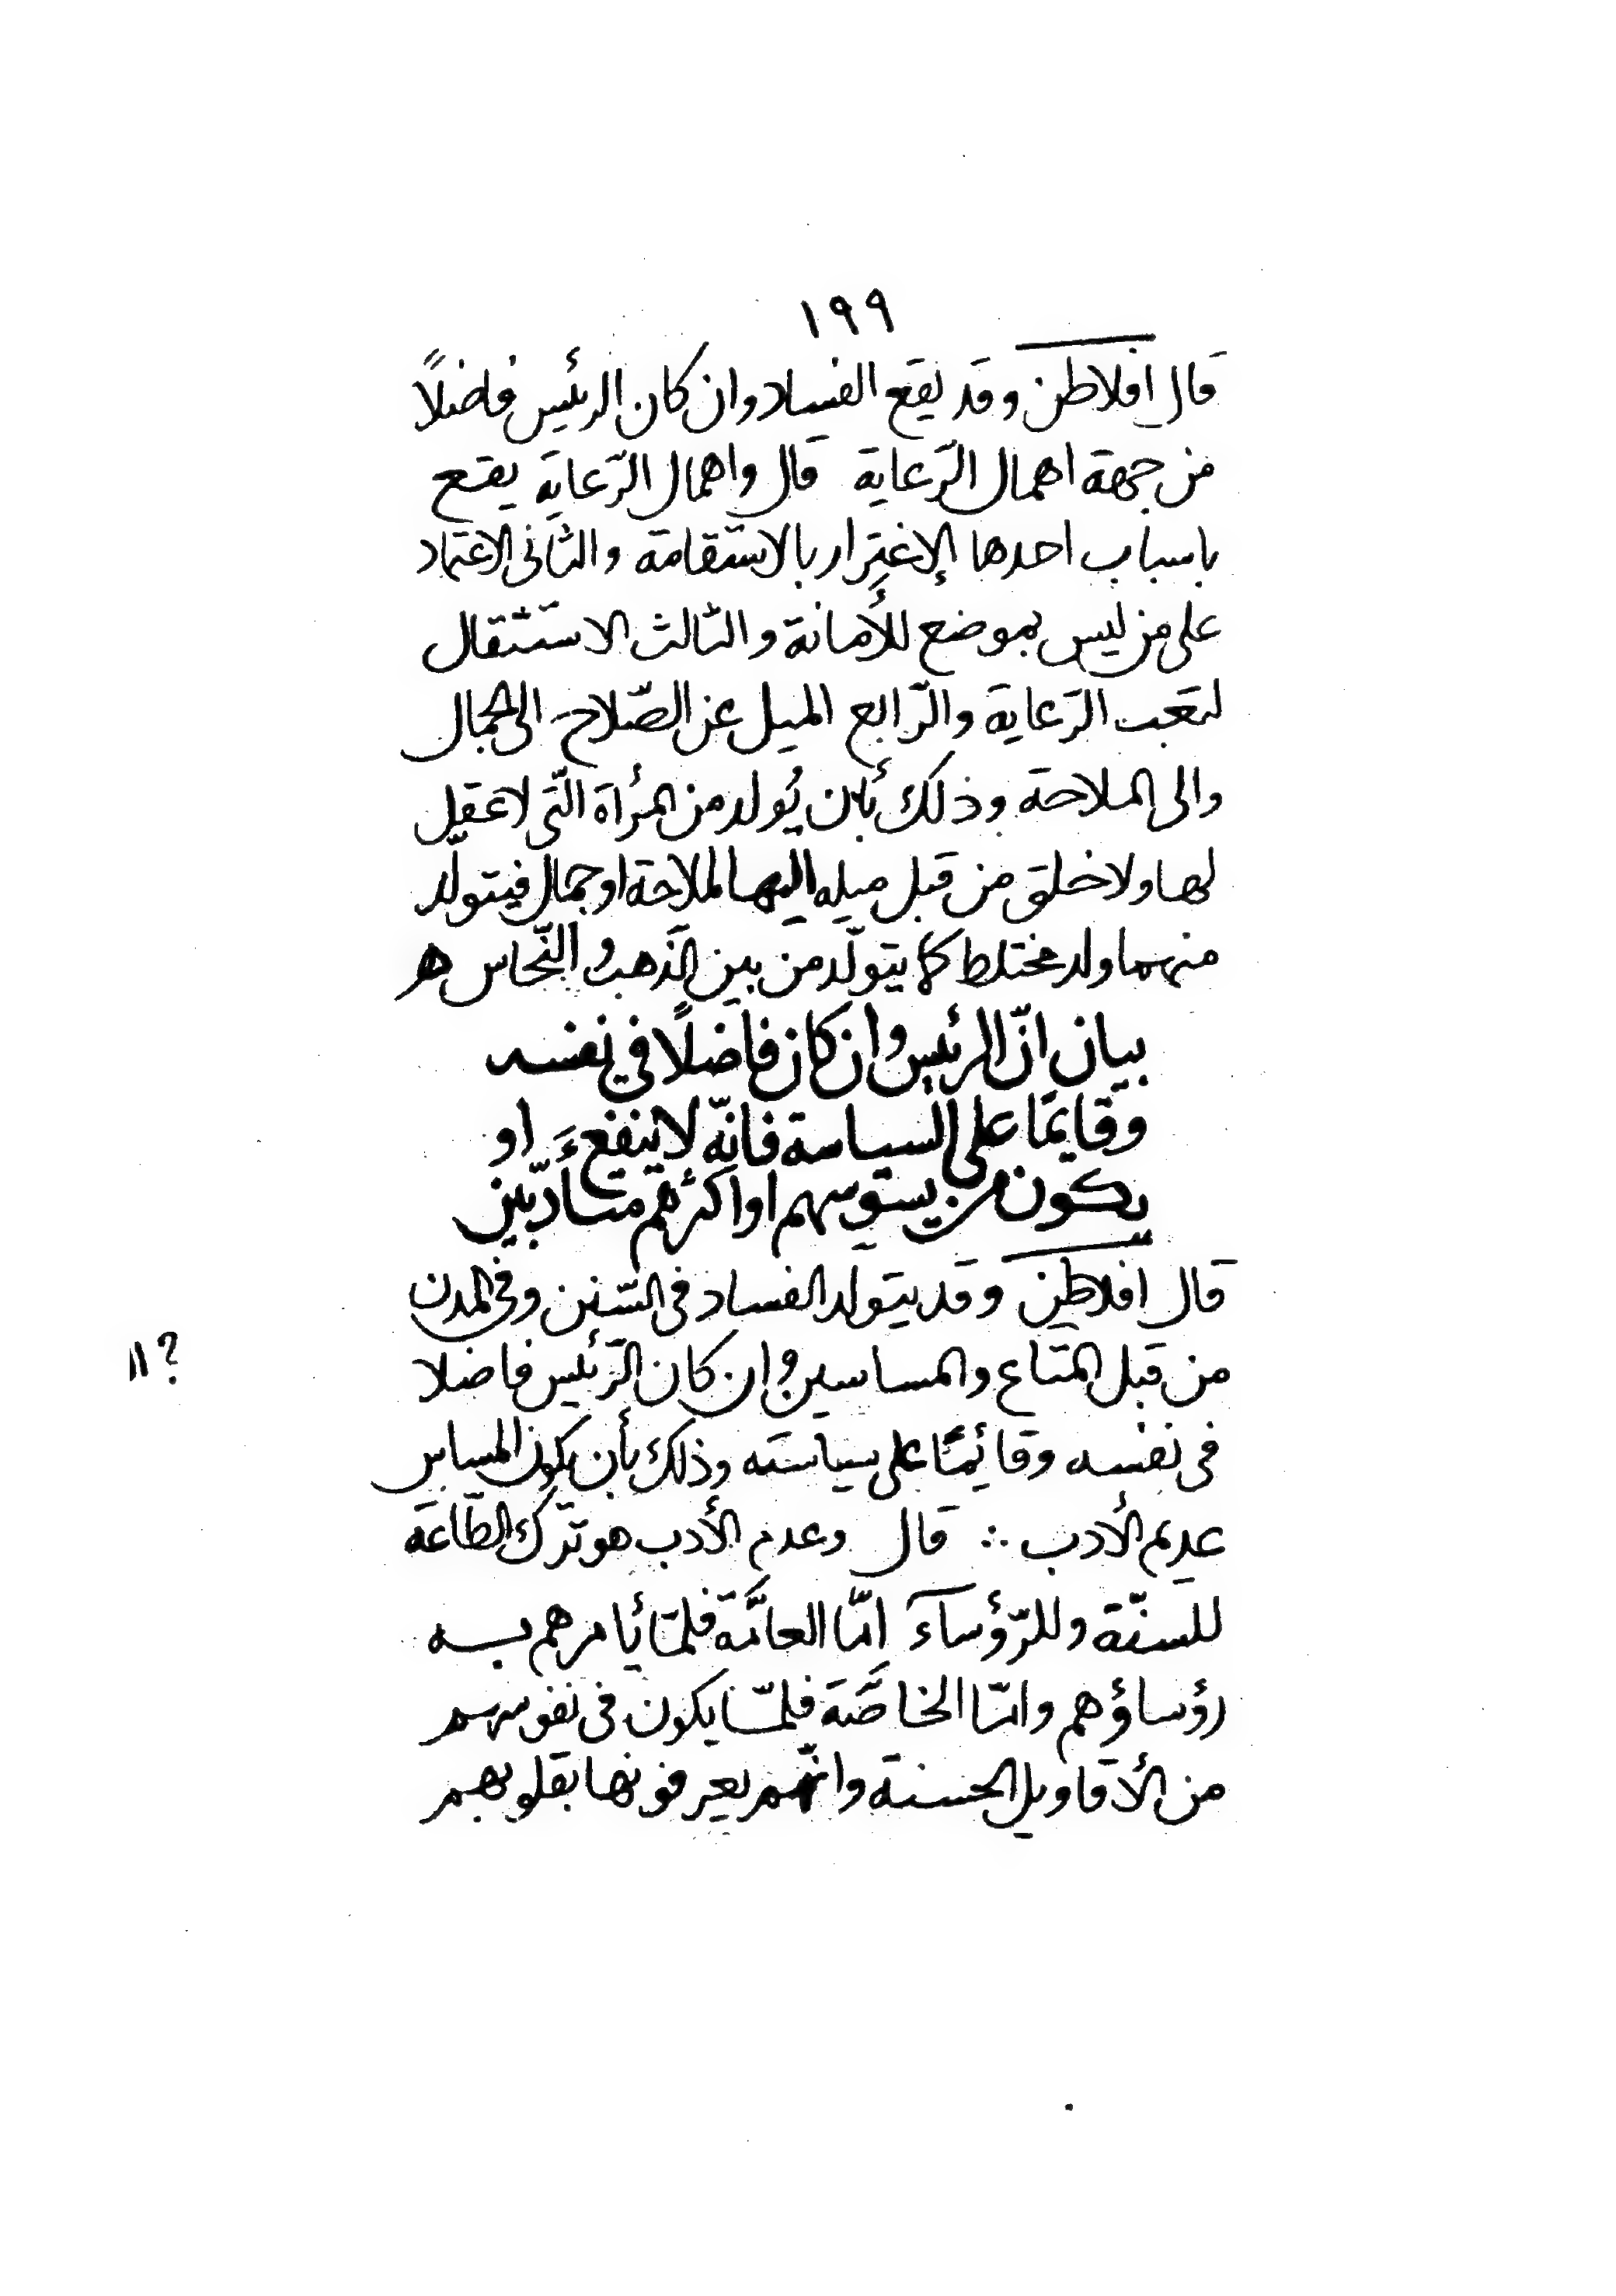 ١٩٩
قال افلاطن وقد يقع الفساد وان كان الرئيس فاضلًا
من جهة اهمال الرّعاية قال واهمال الرّعاية يقع
باسباب احدها الإغتِرار بالاستقامة والثانى الاعتماد
على من ليس بموضع للأمانة والثالث الاستثقال
لتعب الرّعاية والرّابع الميل عن الصّلاح الى الجمال
والى الملاحة وذلك بأن يُولد من المرأة الّتى لا عقل
لها ولا خلق من قبل ميله اليها لملاحة او جمال فيتولّد
منهما ولد مختلط كما يتولّد من بين الذهب والنّحاس هـ
بيان انّ الرئيس وان كان فاضلًا في نفسه
وقايمًا على السياسة فانّه لا ينفع او
يكون من يسوسهم او اكثرهم متأدّبين
قال افلاطن وقد يتولد الفساد فى السّنن وفى المدن
من قبل المتّاع والمساسين وان كان الرّئيس فاضلا
فى نفسه وقائمًا على سياسته وذلك بأن يكون المساس
عديم الأدب ∴ قال وعدم الأدب هو ترك الطّاعة
للسنّة وللرّؤسآء امّا العامّة فلما يأمرهم به
رؤساؤهم وامّا الخاصّة فلما يكون فى نفوسهم
من الأقاويل الحسنة وانّهم يعرفونها بقلوبهم
؟ ١١